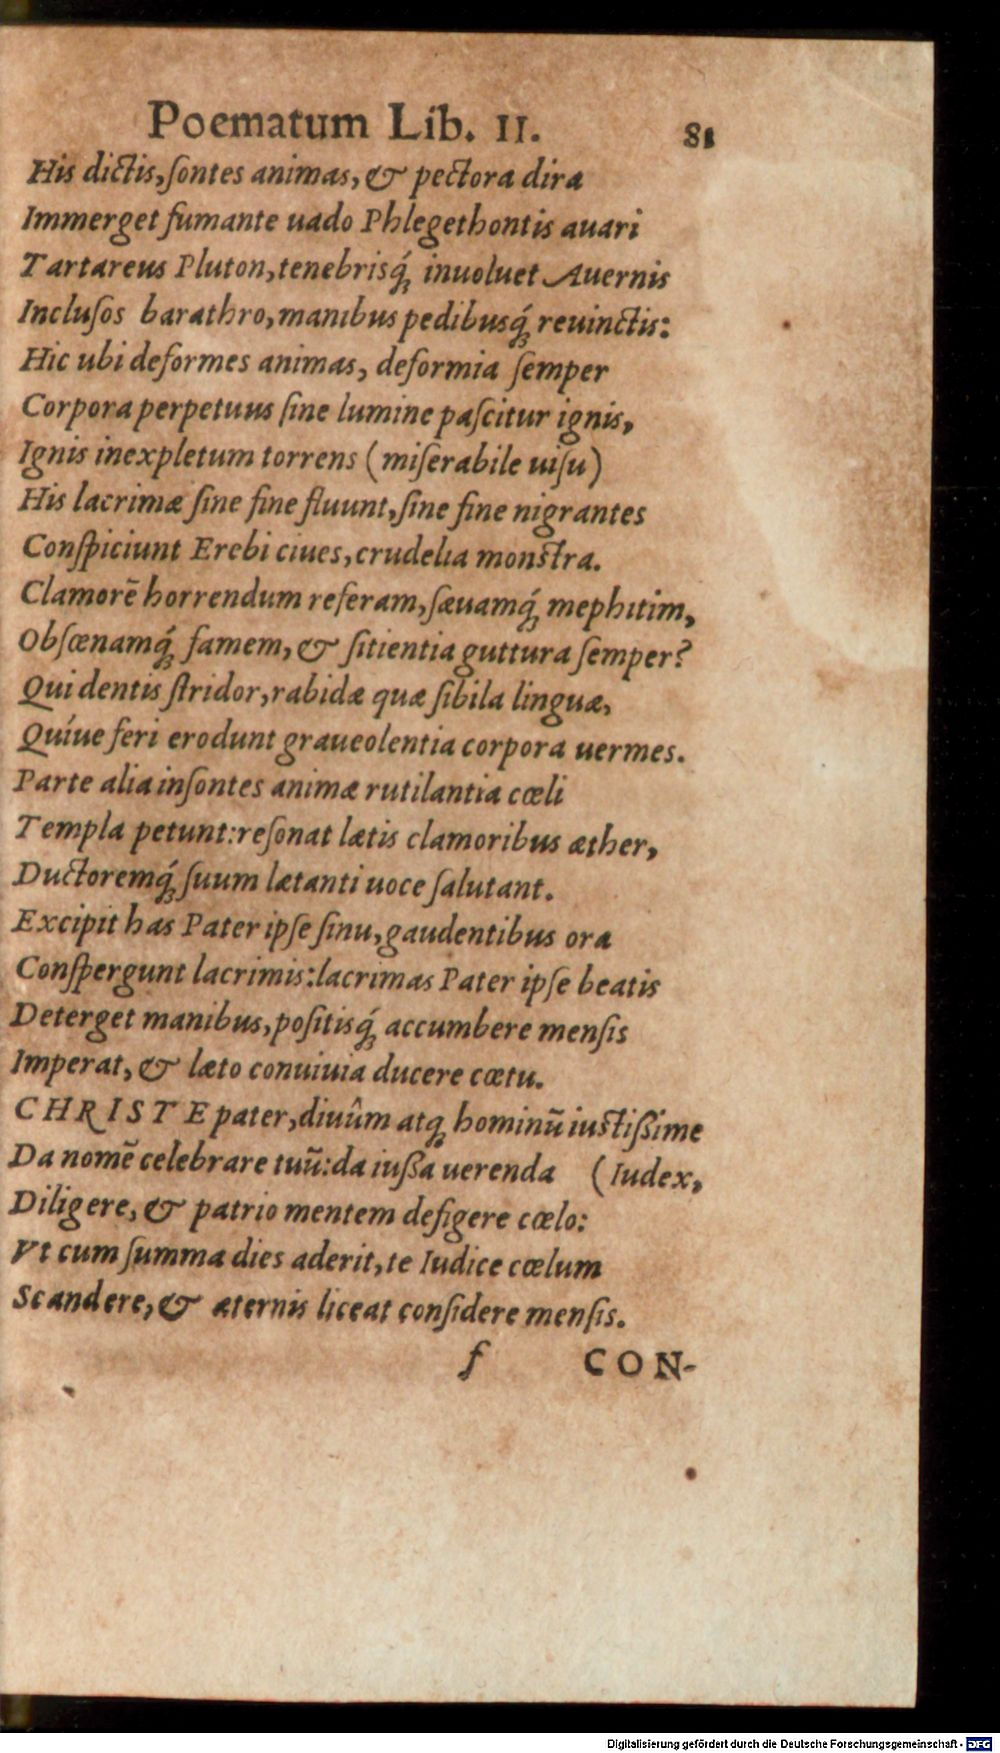 Poematum Lib. II. 81
His dictis, ſontes animas, & pectora dira
Immerget fumante uado Phlegethontis auari
Tartareus Pluton, tenebrisq́; inuoluet Auernis
Incluſos barathro, manibus pedibusq́; reuinctis:
Hic ubi deformes animas, deformia ſemper
Corpora perpetuus ſine lumine paſcitur ignis,
Ignis inexpletum torrens (miſerabile uiſu)
His lacrimæ ſine fine fluunt, ſine fine nigrantes
Conſpiciunt Erebi ciues, crudelia monſtra.
Clamorẽ horrendum referam, ſæuamq́; mephitim,
Obſcœnamq́; famem, & ſitientia guttura ſemper?
Qui dentis ſtridor, rabidæ quæ ſibila linguæ,
Quíue feri erodunt graueolentia corpora uermes.
Parte alia inſontes animæ rutilantia cœli
Templa petunt: reſonat lætis clamoribus æther,
Ductoremq́; ſuum lætanti uoce ſalutant.
Excipit has Pater ipſe ſinu, gaudentibus ora
Conſpergunt lacrimis: lacrimas Pater ipſe beatis
Deterget manibus, poſitisq́; accumbere menſis
Imperat, & læto conuiuia ducere cœtu.
CHRISTE pater, diuûm atq; hominũ iuſtißime
Da nomẽ celebrare tuũ: da iußa uerenda (Iudex,
Diligere, & patrio mentem defigere cœlo:
Vt cum ſumma dies aderit, te Iudice cœlum
Scandere, & æternis liceat conſidere menſis.
f CON-
Digitalisierung gefördert durch die Deutsche Forschungsgemeinschaft - DFG